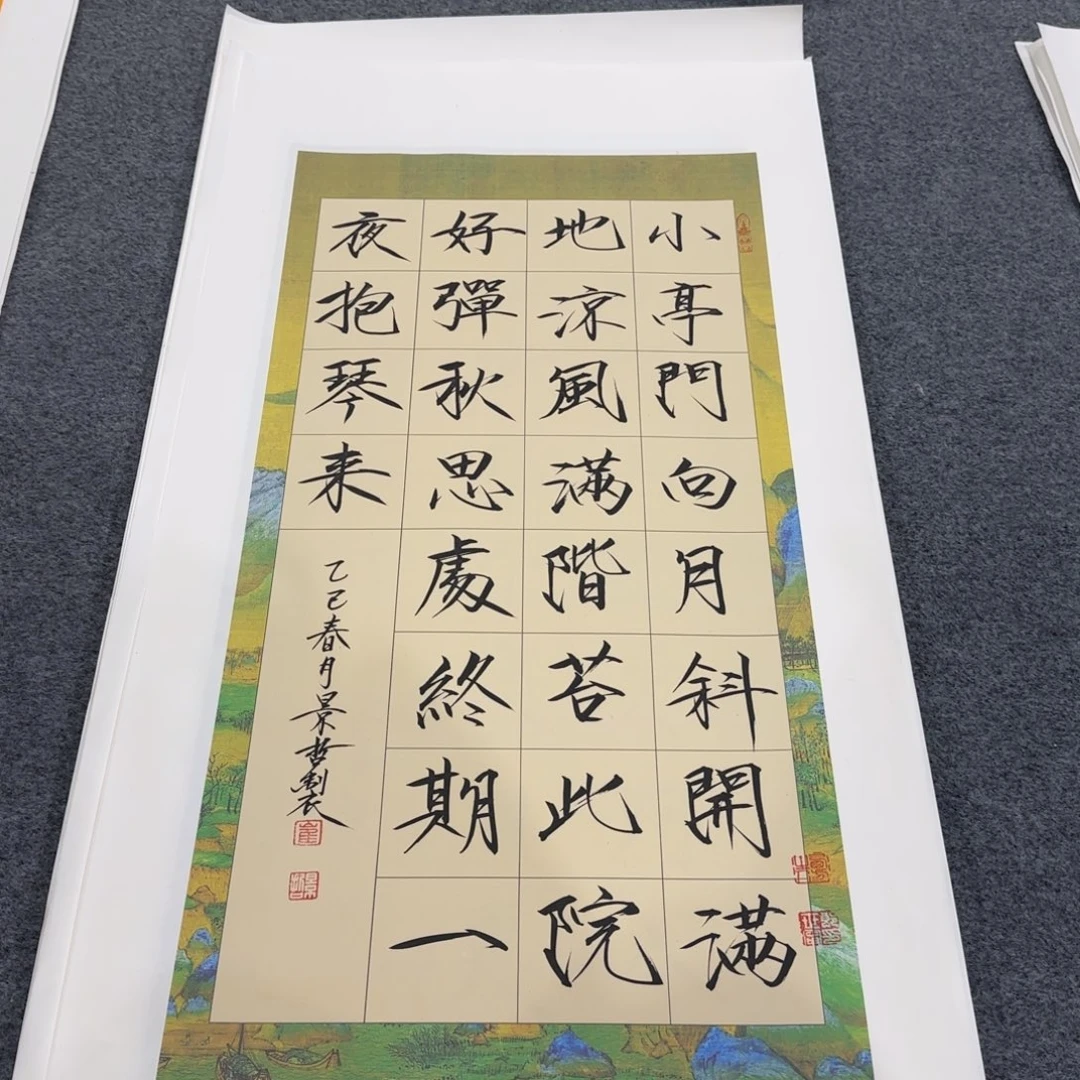 小亭門向月斜開滿
地涼風滿階苔此院
好彈秋思處終期一
夜抱琴来
乙巳春月景哲製
景哲